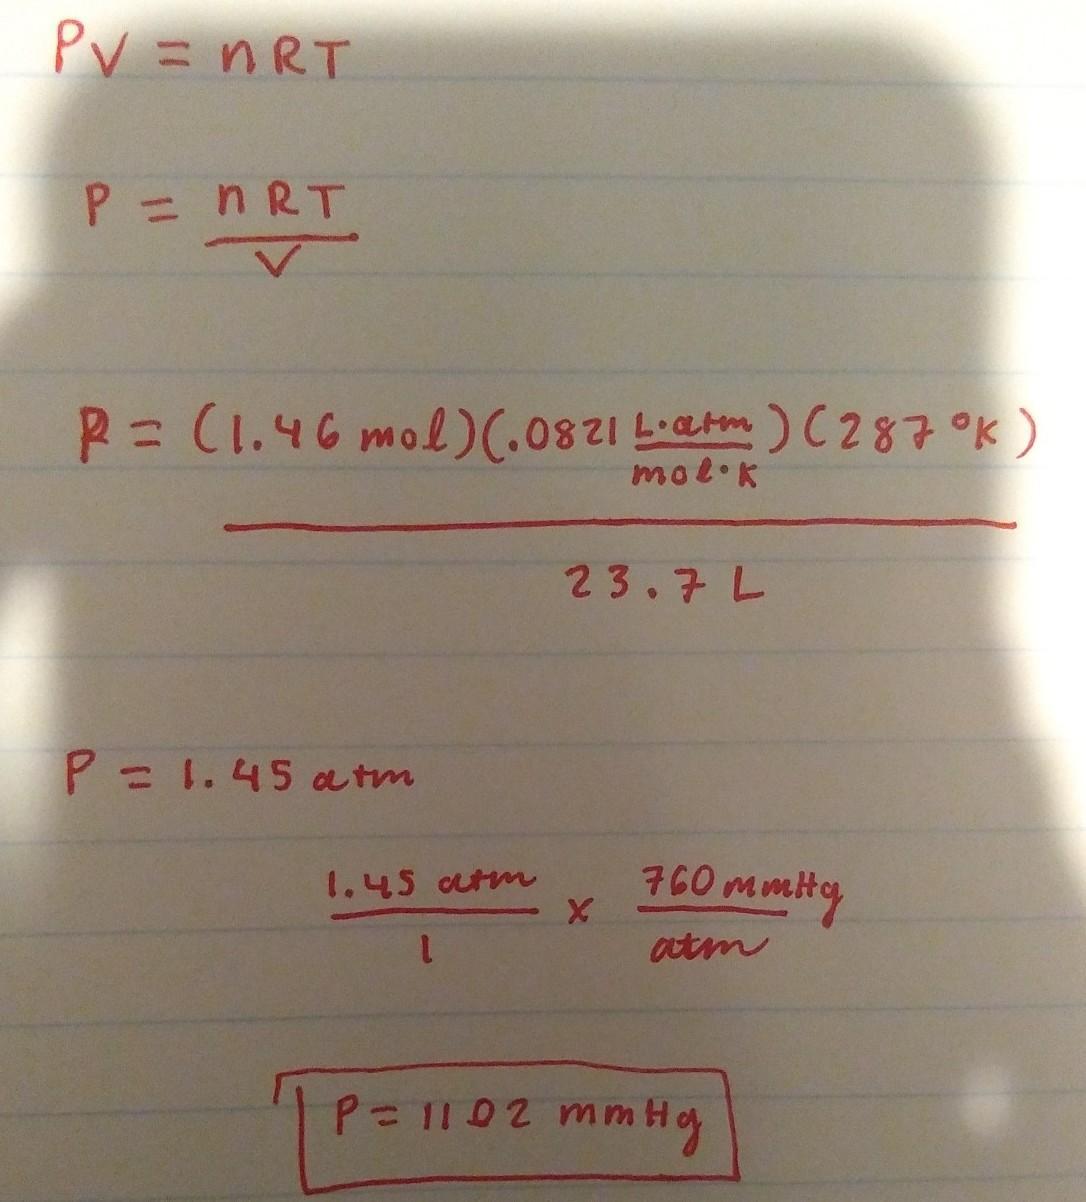 PV = nRT
P = nRT
V
P = (1.46 mol)(.0821 L·atm)(287 °K)
mol·K
23.7 L
P = 1.45 atm
1.45 atm x 760 mmHg
1 atm
P = 1102 mmHg